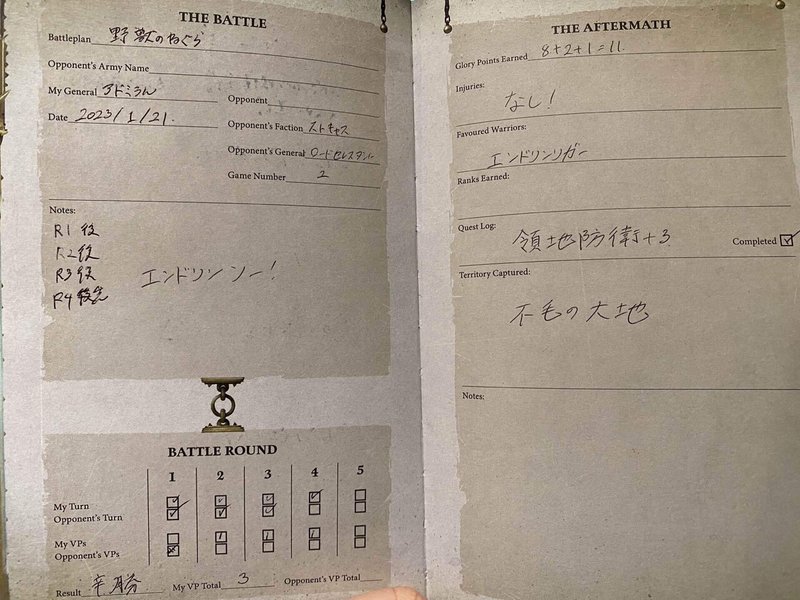 THE BATTLE
Battleplan 野獣のねぐら
Opponent's Army Name
My General アドミラル
Opponent
Date 2023/1/21.
Opponent's Faction ストキャス
Opponent's General ロードセレスタント
Game Number 2
Notes:
R1 後
R2 後
R3 後
R4 先
エンドリンソー!
BATTLE ROUND
1 2 3 4 5
My Turn
Opponent's Turn
My VPs 1 1 1
Opponent's VPs
Result 辛勝 My VP Total 3 Opponent's VP Total
THE AFTERMATH
Glory Points Earned 8+2+1=11
Injuries:
なし!
Favoured Warriors:
エンドリンリガー
Ranks Earned:
Quest Log:
領地防衛+3 Completed
Territory Captured:
不毛の大地
Notes: